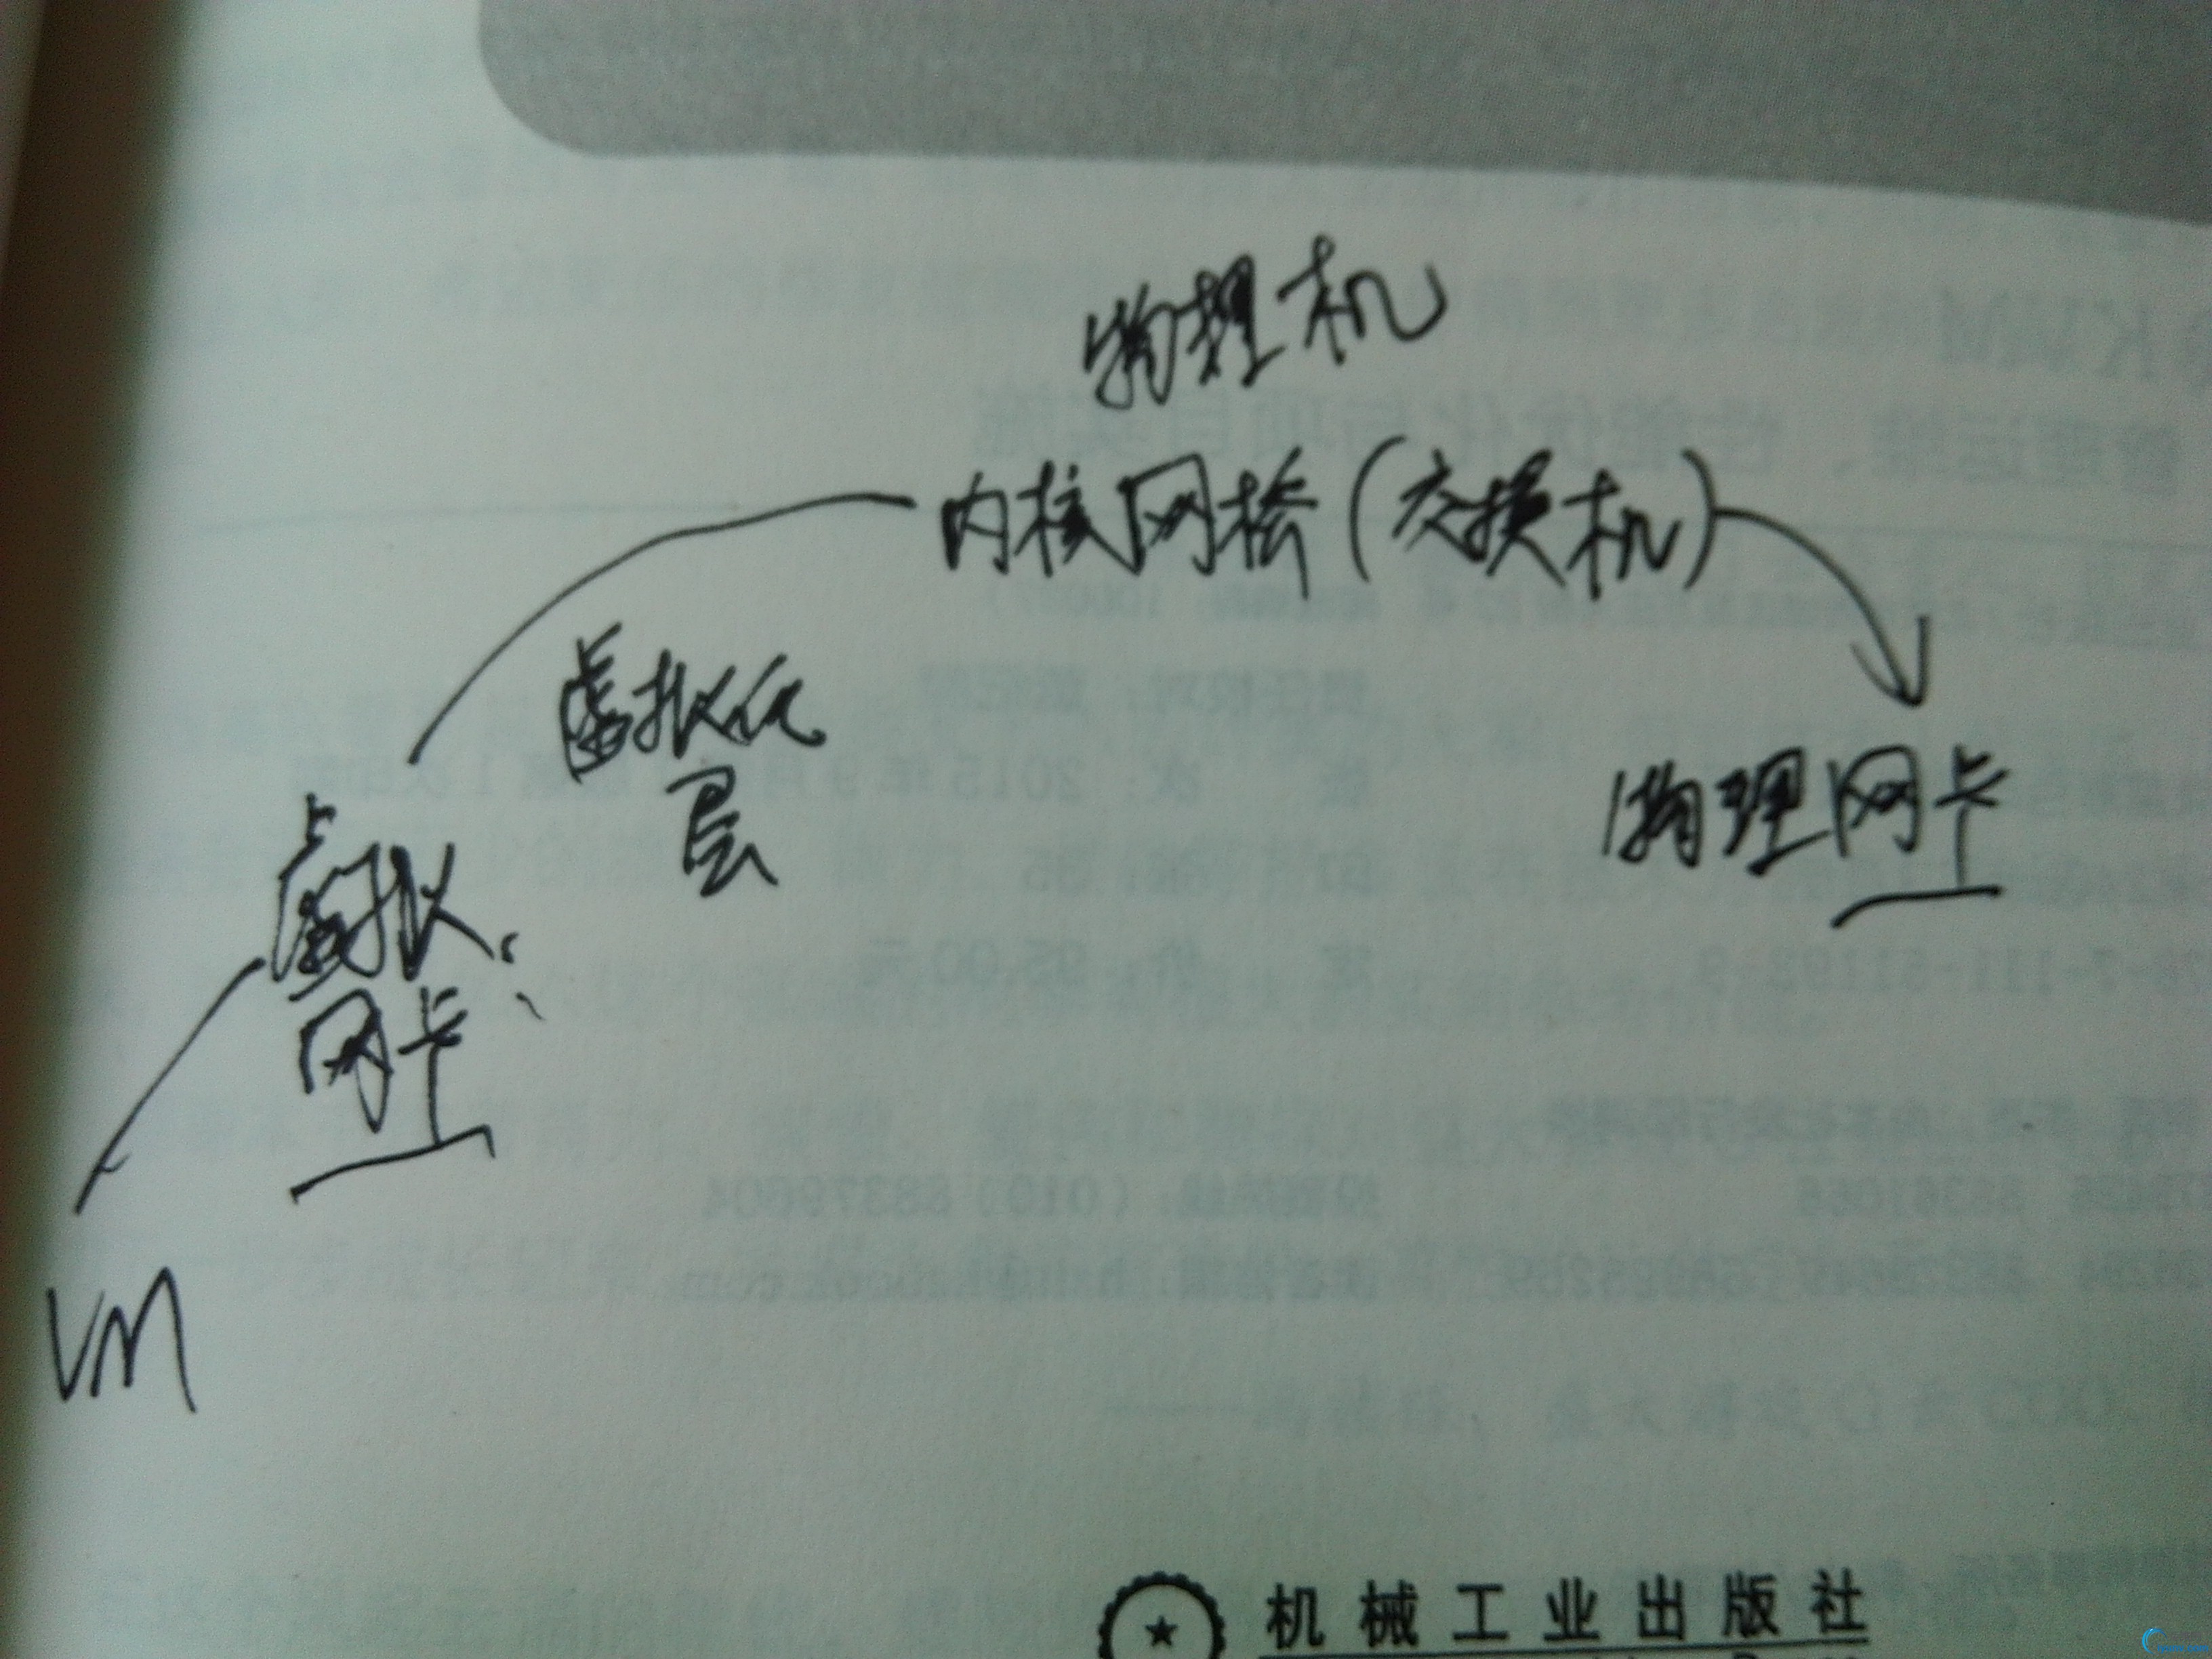 物理机
内核网桥(交换机)
虚拟化
层
物理网卡
虚拟
网卡
VM
机械工业出版社